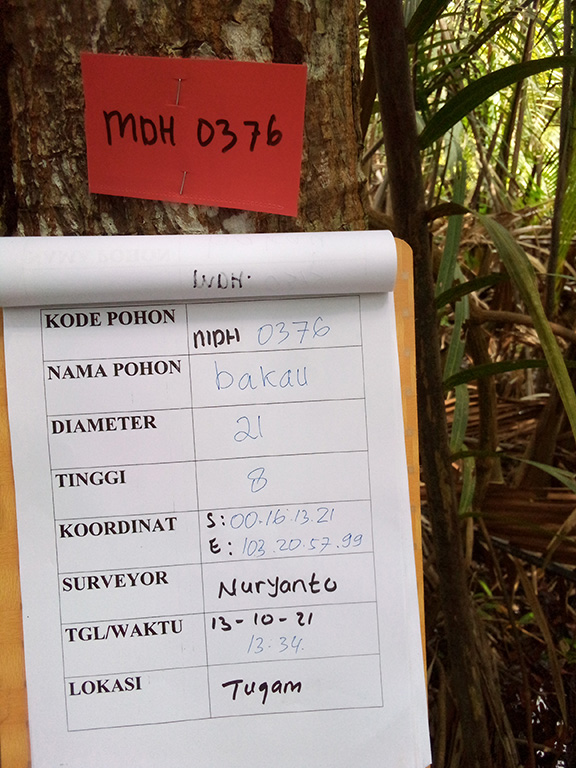 MDH 0376
MDH.
KODE POHON MDH 0376
NAMA POHON bakau
DIAMETER 21
TINGGI 8
KOORDINAT S: 00.16.13.21
E: 103.20.57.99
SURVEYOR Nuryanto
TGL/WAKTU 13-10-21
13.34.
LOKASI Tugam